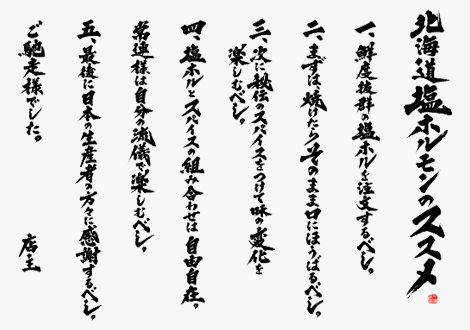 北海道塩ホルモンのススメ
一、鮮度抜群の塩ホルを注文するべし。
二、まずは、焼けたらそのまま口にほうばるべし。
三、次に秘伝のスパイスをつけて味の変化を
楽しむべし。
四、塩ホルとスパイスの組み合わせは自由自在。
常連様は自分の流儀で楽しむべし。
五、最後に日本の生産者の方々に、感謝するべし。
ご馳走様でした。
店主